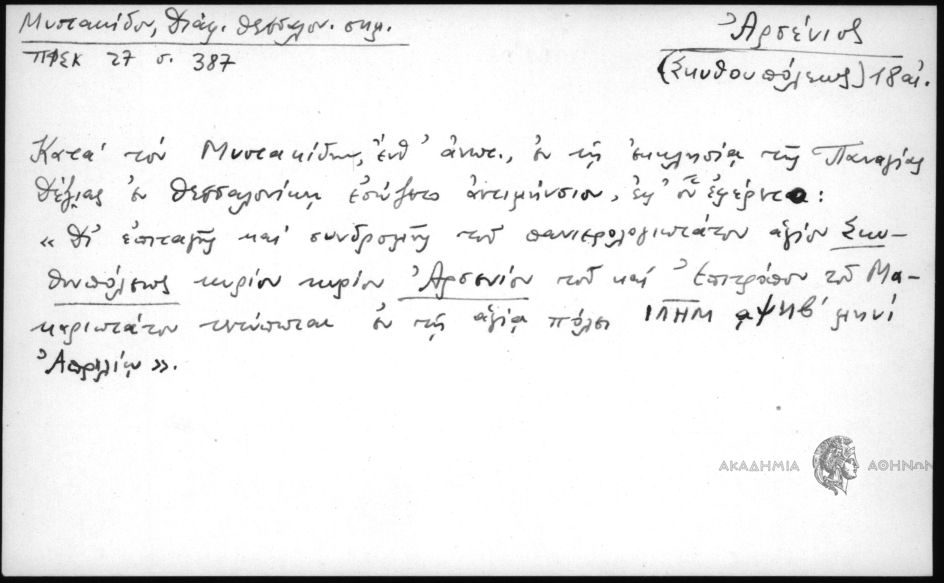 Μυστακίδου, Διάφ. Θεσσαλον. σημ.
ΠΦΣΚ 27 σ. 387
Ἀρσένιος
(Σκυθουπόλεως) 18 αἰ.
Κατά τόν Μυστακίδην, ἔνθ' ἀνωτ., ἐν τῇ ἐκκλησίᾳ τῆς Παναγίας
Δέξιας ἐν Θεσσαλονίκῃ ἐσώζετο ἀντιμήνσιον, ἐφ' οὗ ἐφέρετο:
«Δι' ἐπιταγῆς καί συνδρομῆς τοῦ πανιερολογιωτάτου ἁγίου Σκυ-
θουπόλεως κυρίου κυρίου Ἀρσενίου τοῦ καί Ἐπιτρόπου τοῦ Μα-
καριωτάτου τετύπωται ἐν τῇ ἁγίᾳ πόλει ΙΛΗΜ ͵αψηβ' μηνί
Ἀπριλίῳ».
ΑΚΑΔΗΜΙΑ ΑΘΗΝΩΝ